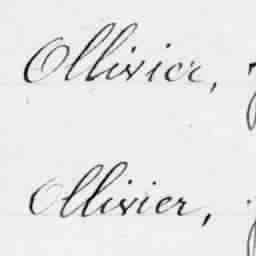 Ollivier,
Ollivier,